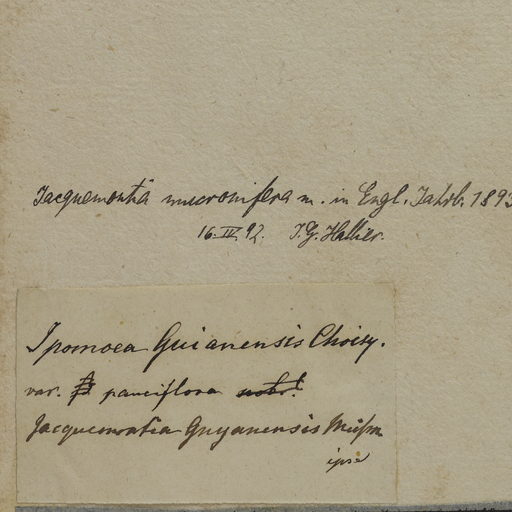 Jacquemontia mucronifera m. in Engl. Jahrb. 1893
16. IV. 92. J. G. Hallier.
Ipomoea Guianensis Choisy.
var. β pauciflora nob.!
Jacquemontia Guyanensis Meisn
ipse